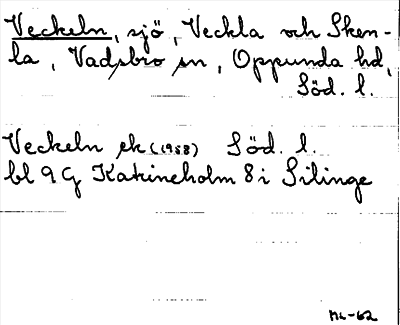 Veckeln, sjö, Veckla och Sken-
la, Vadsbro sn, Oppunda hd,
Söd. l.
Veckeln ek (1958) Söd. l.
bl 9 G Katrineholm 8 i Silinge
ML-62